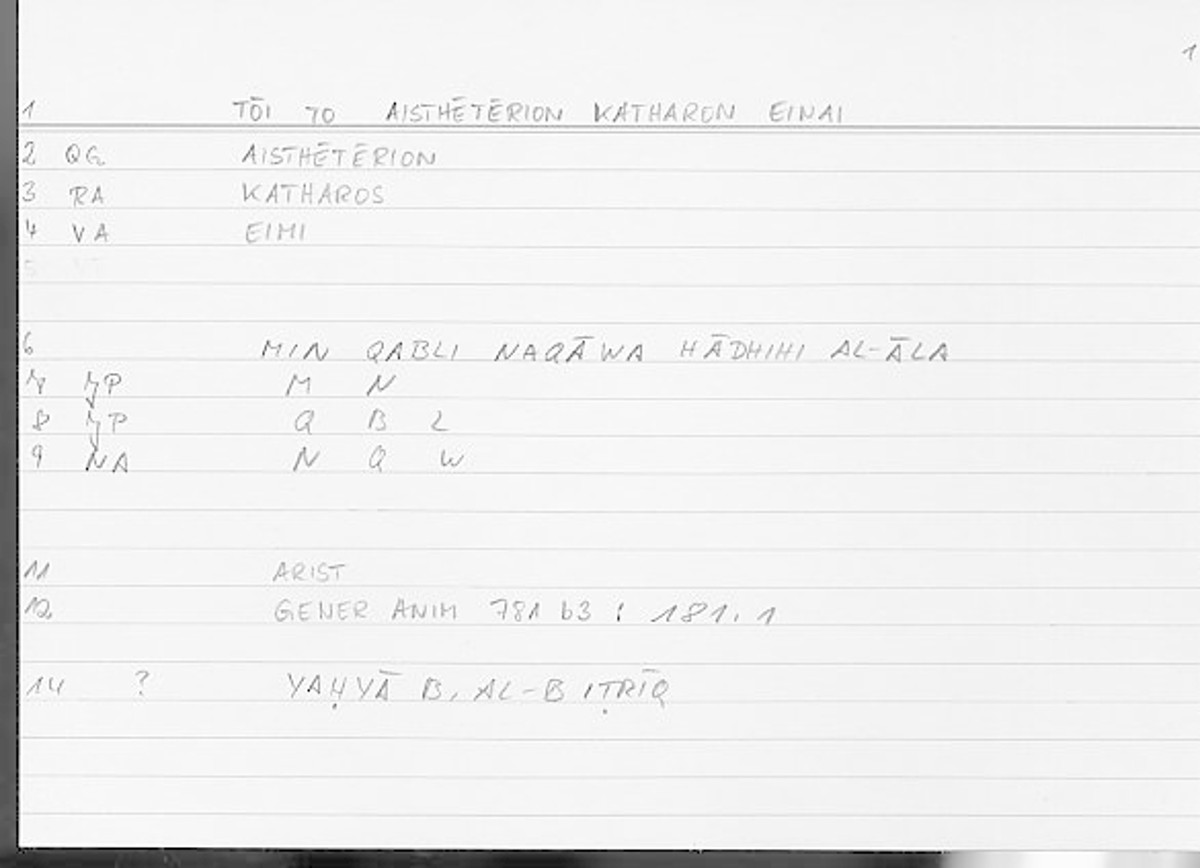 1
1 TŌI TO AISTHĒTĒRION KATHARON EINAI
2 QG AISTHĒTĒRION
3 RA KATHAROS
4 VA EIMI
5
6 MIN QABLI NAQĀWA HĀDHIHI AL-ĀLA
7 JP M N
8 JP Q B L
9 NA N Q W
11 ARIST
12 GENER ANIM 781 b3 : 181.1
14 ? YAḤYĀ B. AL-BIṬRĪQ